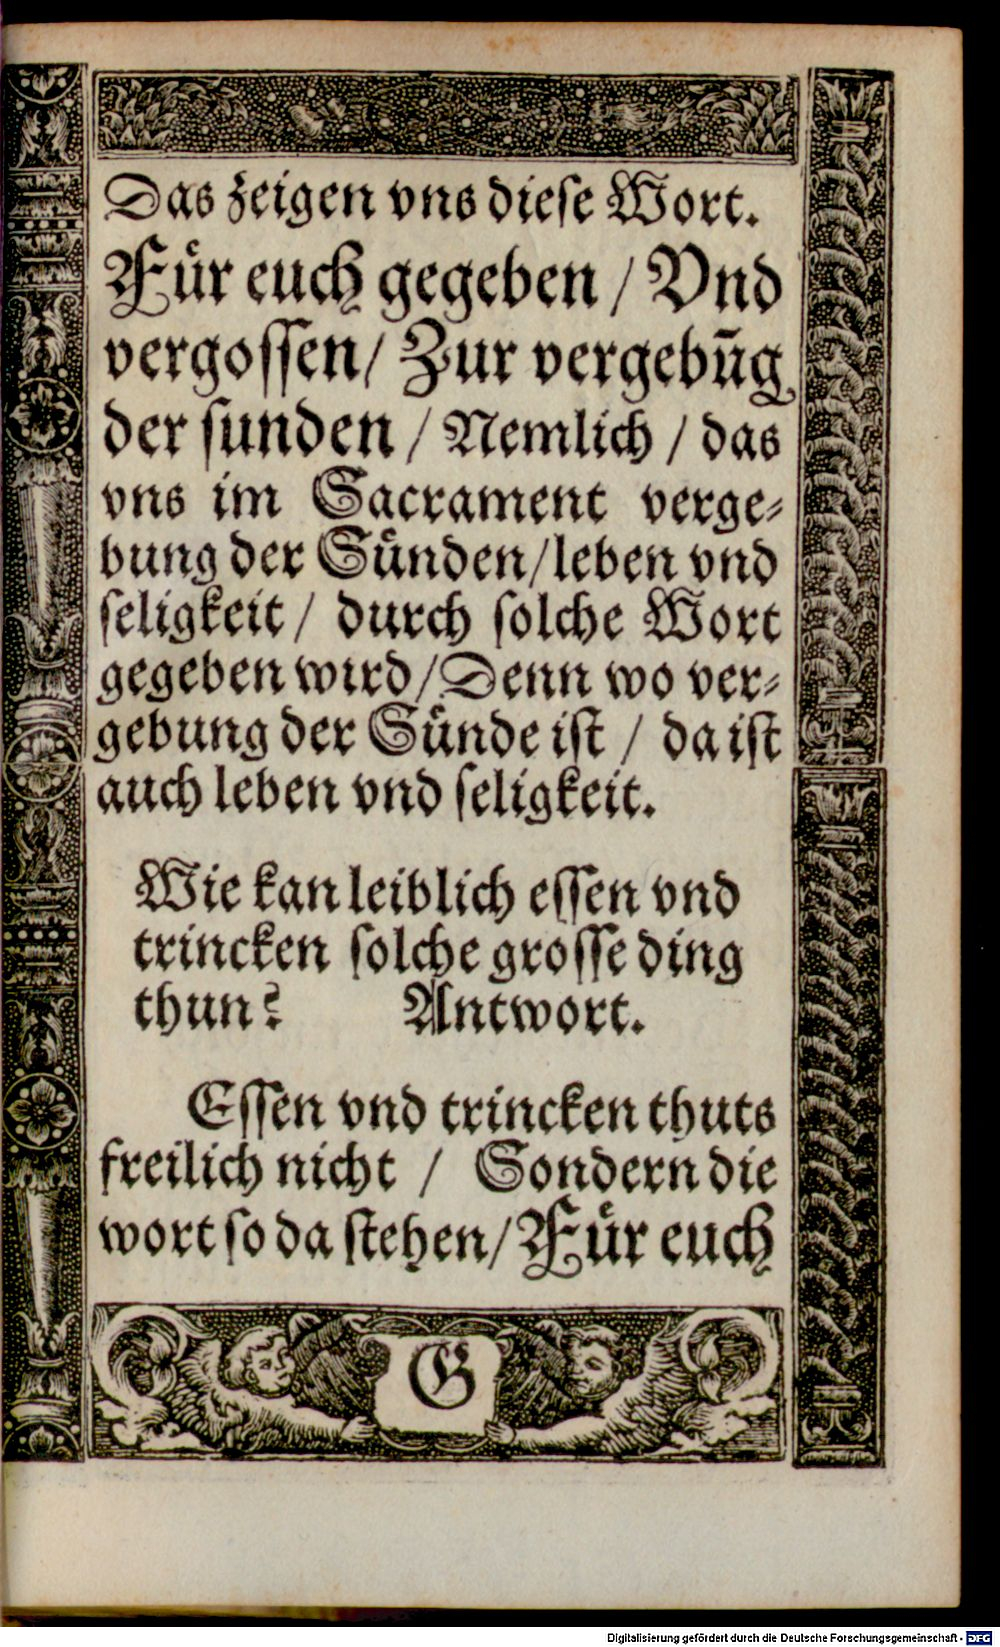 Das zeigen vns diese Wort.
Für euch gegeben / Vnd
vergossen / Zur vergebũg
der sunden / Nemlich / das
vns im Sacrament verge⸗
bung der Sünden / leben vnd
seligkeit / durch solche Wort
gegeben wird / Denn wo ver⸗
gebung der Sünde ist / da ist
auch leben vnd seligkeit.
Wie kan leiblich essen vnd
trincken solche grosse ding
thun? Antwort.
Essen vnd trincken thuts
freilich nicht / Sondern die
wort so da stehen / Für euch
G
Digitalisierung gefördert durch die Deutsche Forschungsgemeinschaft - DFG